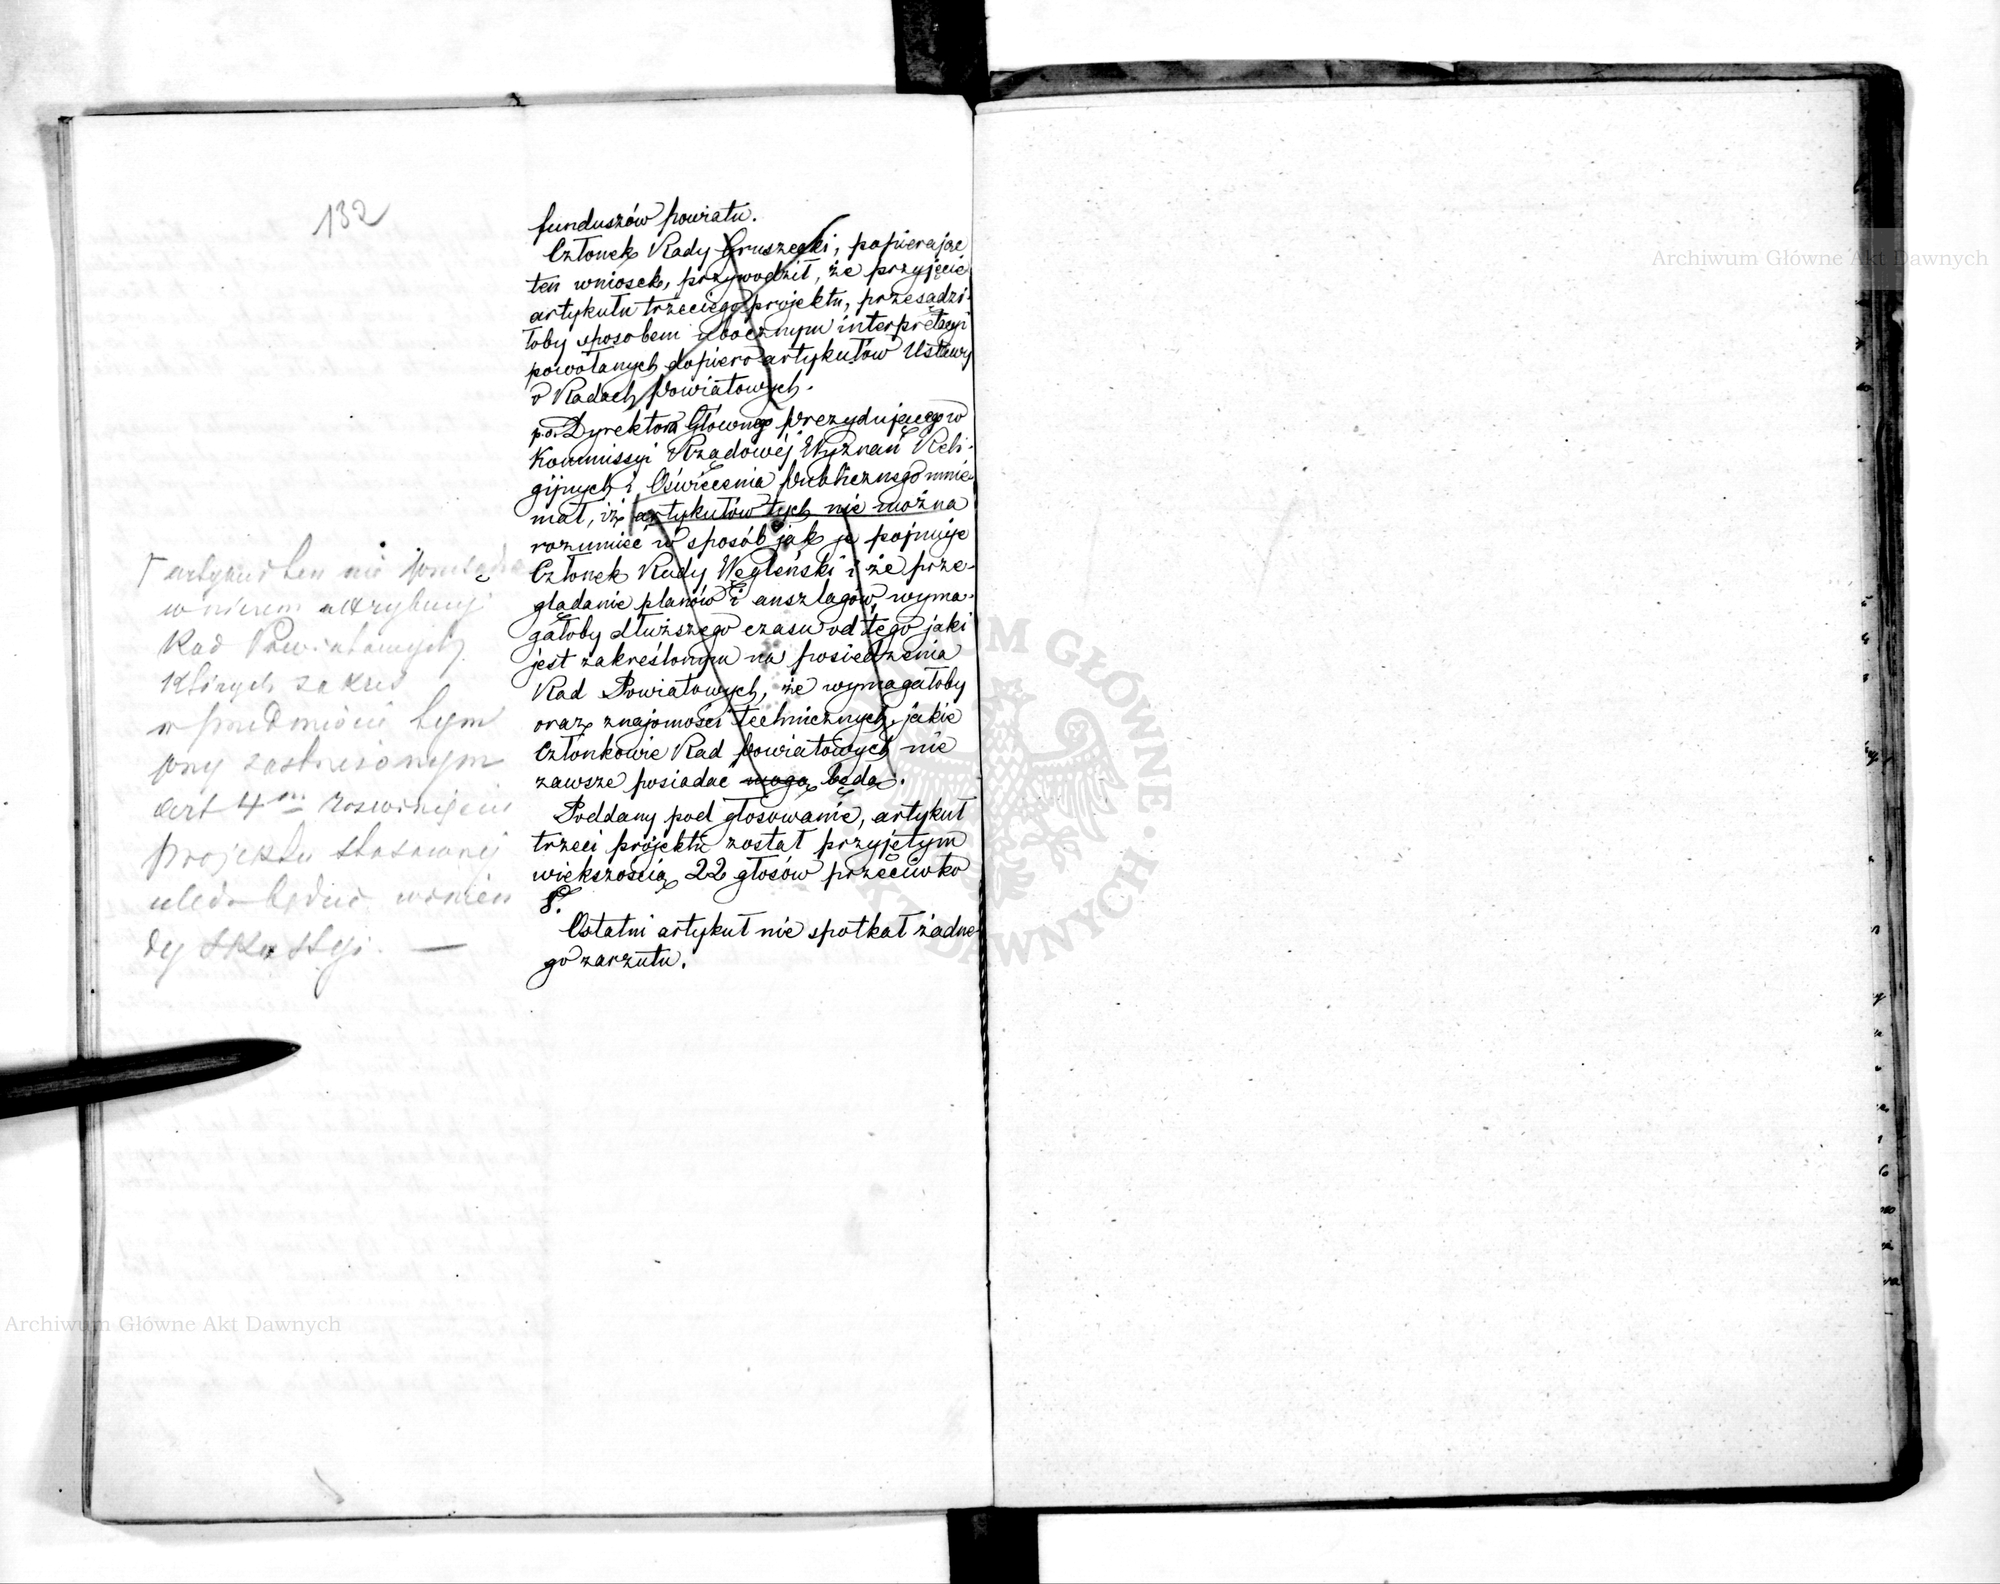 132
funduszów powiatu.
Członek Rady Gruszecki, popierając
ten wniosek, przywodził, że przyjęcie
artykułu trzeciego projektu, przesądzi-
łoby sposobem ubocznym interpretacyi
powołanych dopiero artykułów Ustawy
o Radach Powiatowych.
p.o. Dyrektora Główngo Prezydującego w
Kommissyi Rządowéj Wyznań Reli-
gijnych i Oświecenia Publicznego mnie-
mał, iż artykułów tych nie można
rozumieć w sposób jak je pojmuje
Członek Rady Węgleński i że prze-
glądanie planów i anszlagów, wyma-
gałoby dłuższego czasu od tego jaki
jest zakreślonym na posiedzenia
Rad Powiatowych, że wymagałoby
oraz znajomości technicznych, jakie
Członkowie Rad Powiatowych nie
zawsze posiadać mogą będą.
Poddany pod głosowanie, artykuł
trzeci projektu został przyjętym
większością 22 głosów przeciwko
8.
Ostatni artykuł nie spotkał żadne-
go zarzutu.
artykuł ten nie
w niczem attrybucyi
Rad Powiatowych
których zakres
w przedmiocie tym
art 4m
projektu stosownej
Archiwum Główne Akt Dawnych
Archiwum Główne Akt Dawnych
ARCHIWUM GŁÓWNE AKT DAWNYCH